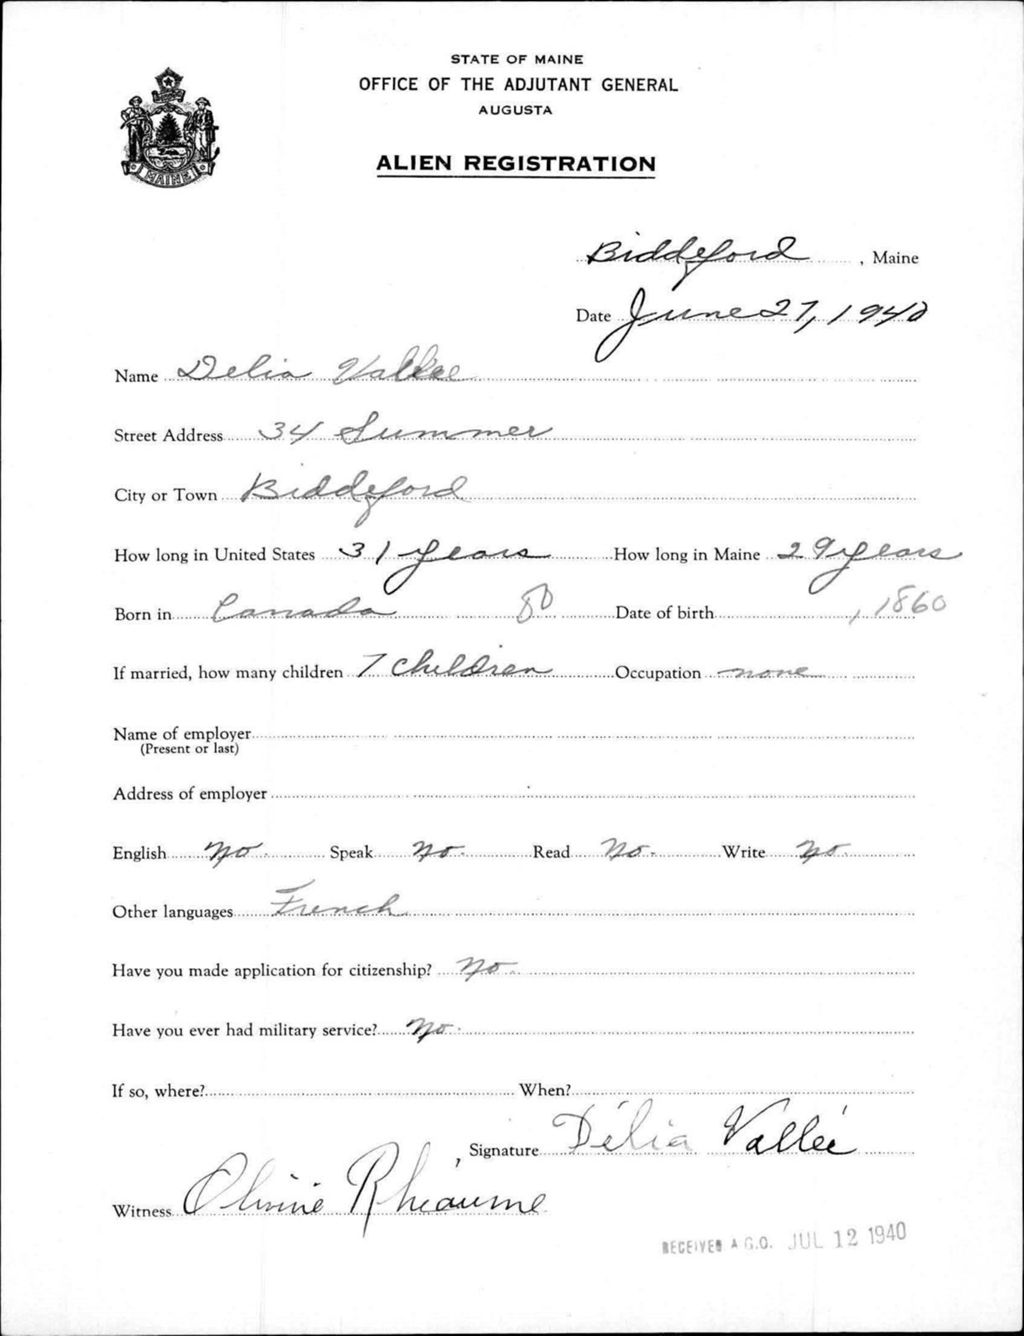 STATE OF MAINE
OFFICE OF THE ADJUTANT GENERAL
AUGUSTA
ALIEN REGISTRATION
MAINE
Biddeford, Maine
Date June 27, 1940
Name Delia Vallee
Street Address 34 Summer
City or Town Biddeford
How long in United States 31 years How long in Maine 29 years
Born in Canada 80 Date of birth , 1860
If married, how many children 7 children Occupation none
Name of employer
(Present or last)
Address of employer
English No. Speak No. Read No. Write No.
Other languages French
Have you made application for citizenship? No.
Have you ever had military service? No.
If so, where? When?
Signature Délia Vallée
Witness Rhéaume
RECEIVED A.G.O. JUL 12 1940